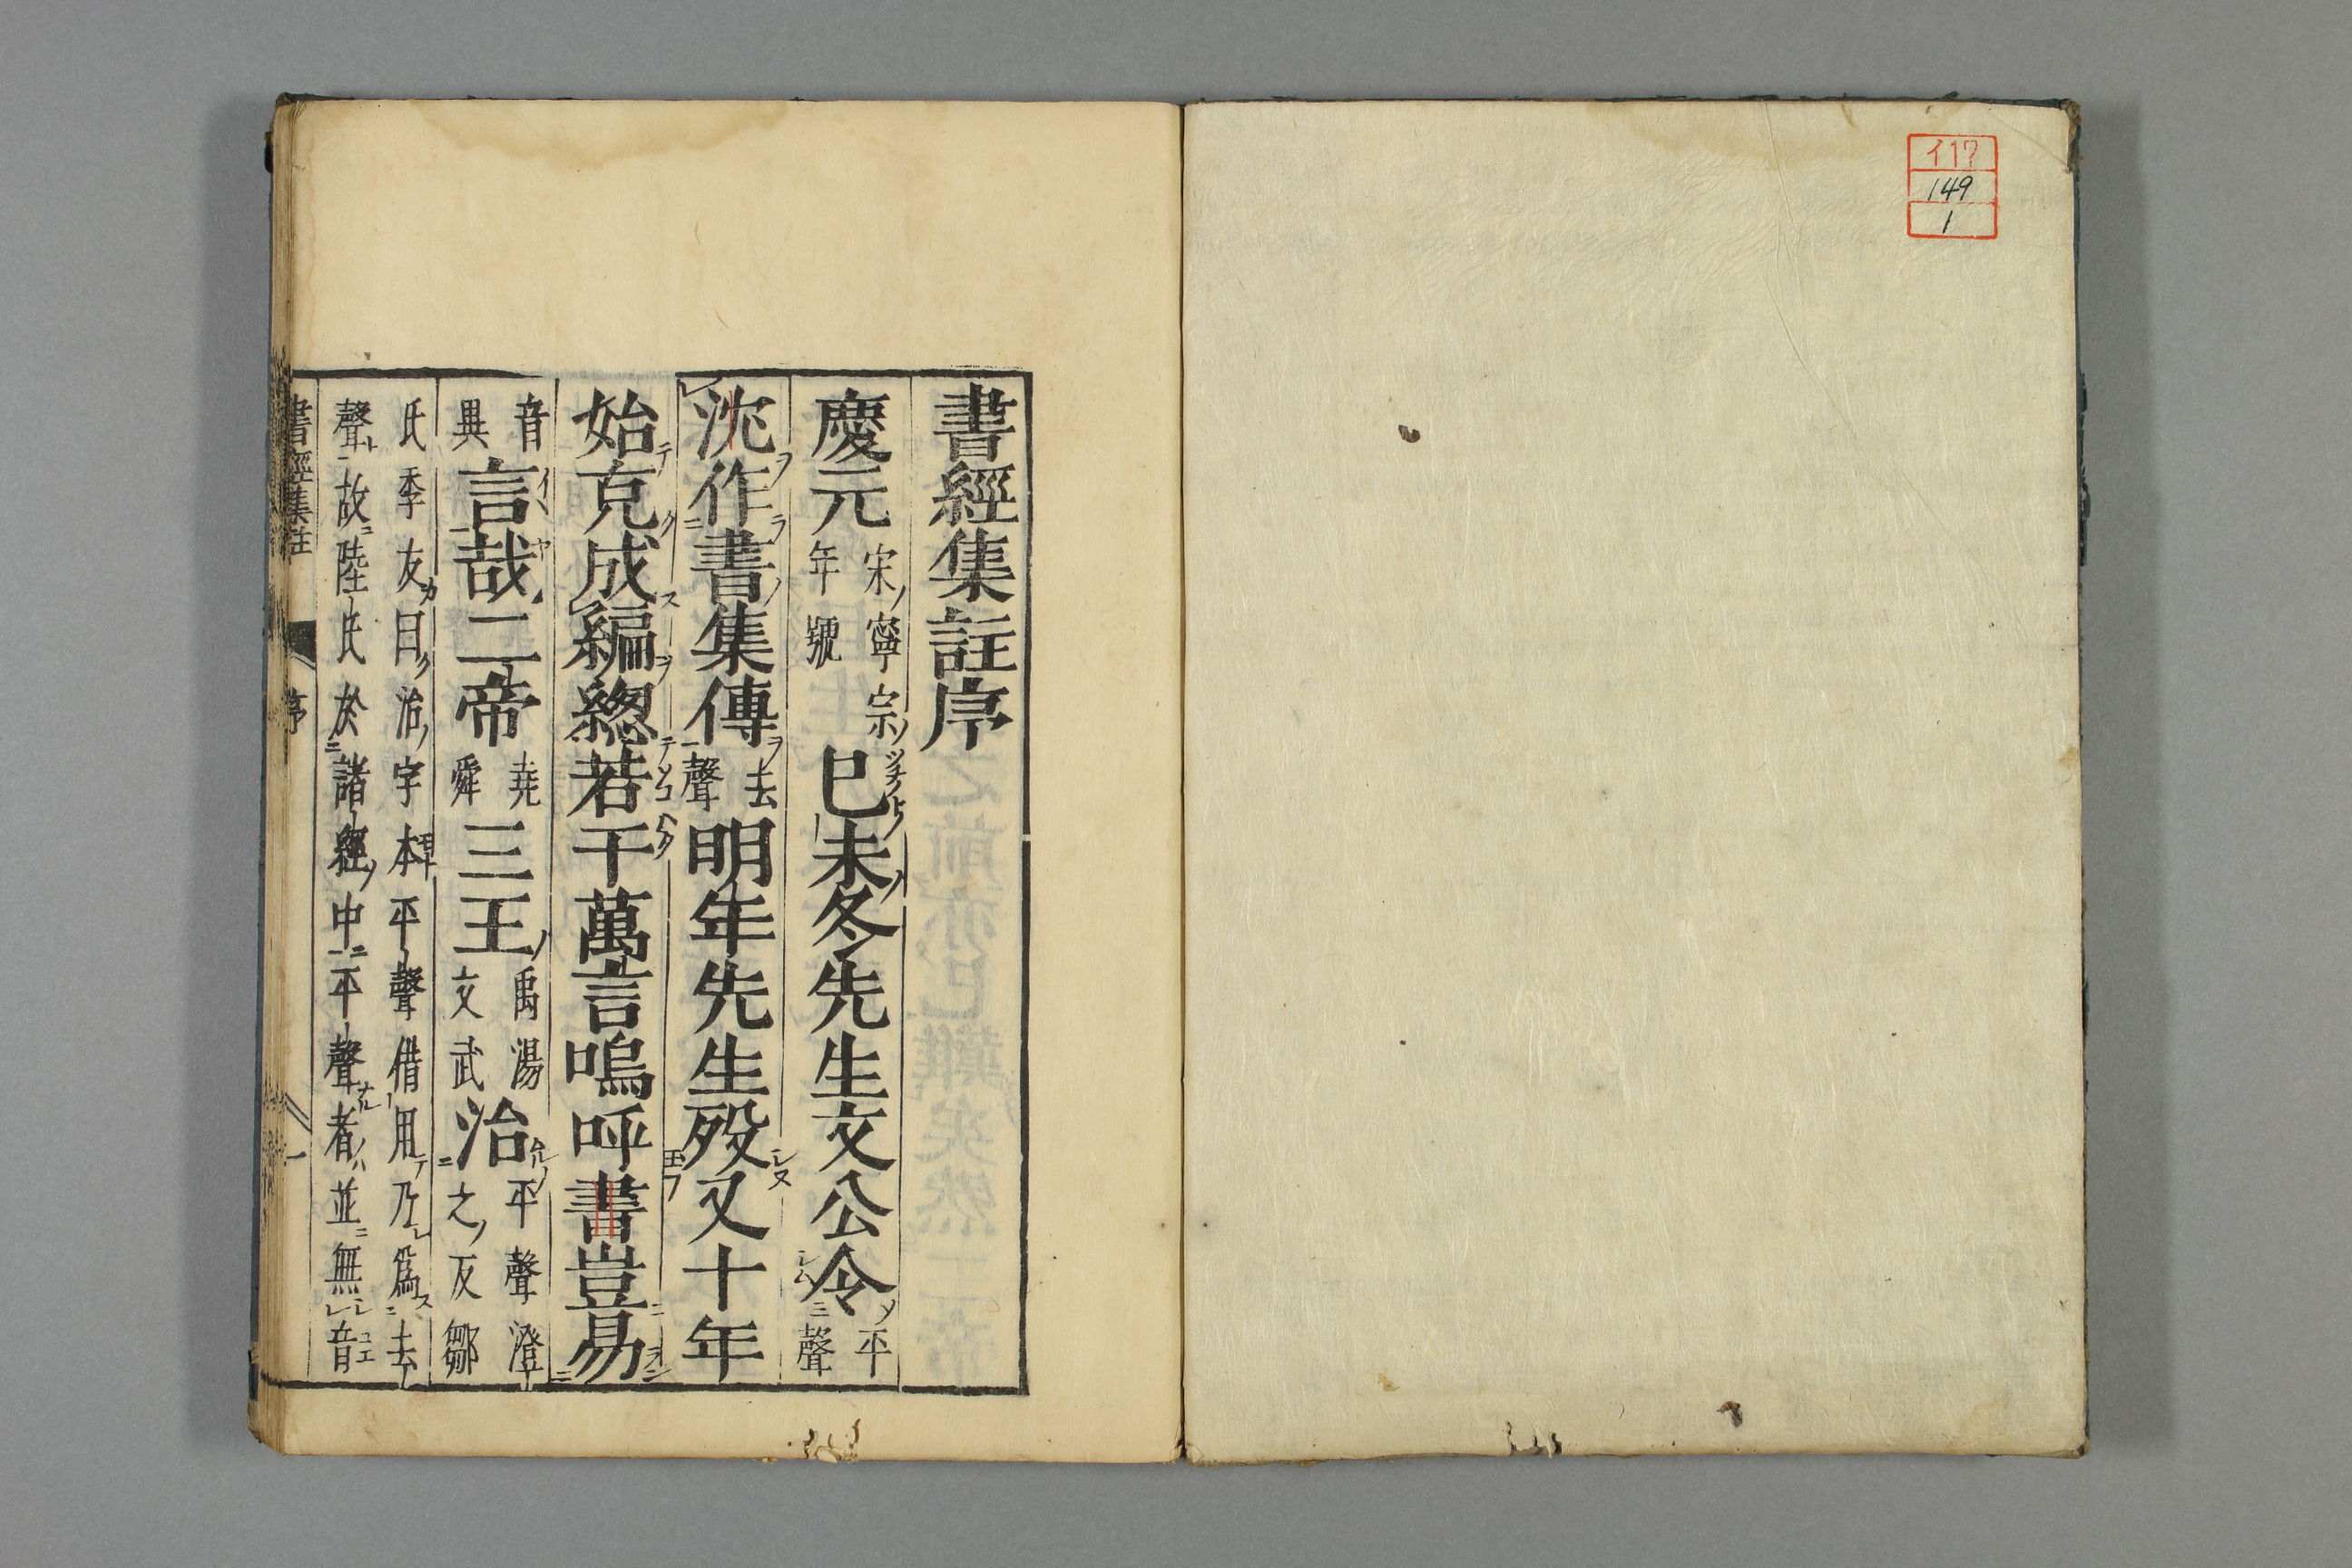 イ17
149
1
書經集註序
慶元宋寧宗年號巳未冬先生文公令平聲
沈作書集傳去聲明年先生歿又十年
始克成編緫若干萬言嗚呼書豈易
音異言哉二帝堯舜三王禹湯文武治平聲澄之反鄒
氏季友曰治字本平聲借用乃爲去
聲故陸氏於諸經中平聲者並無音
書經集註 序 一